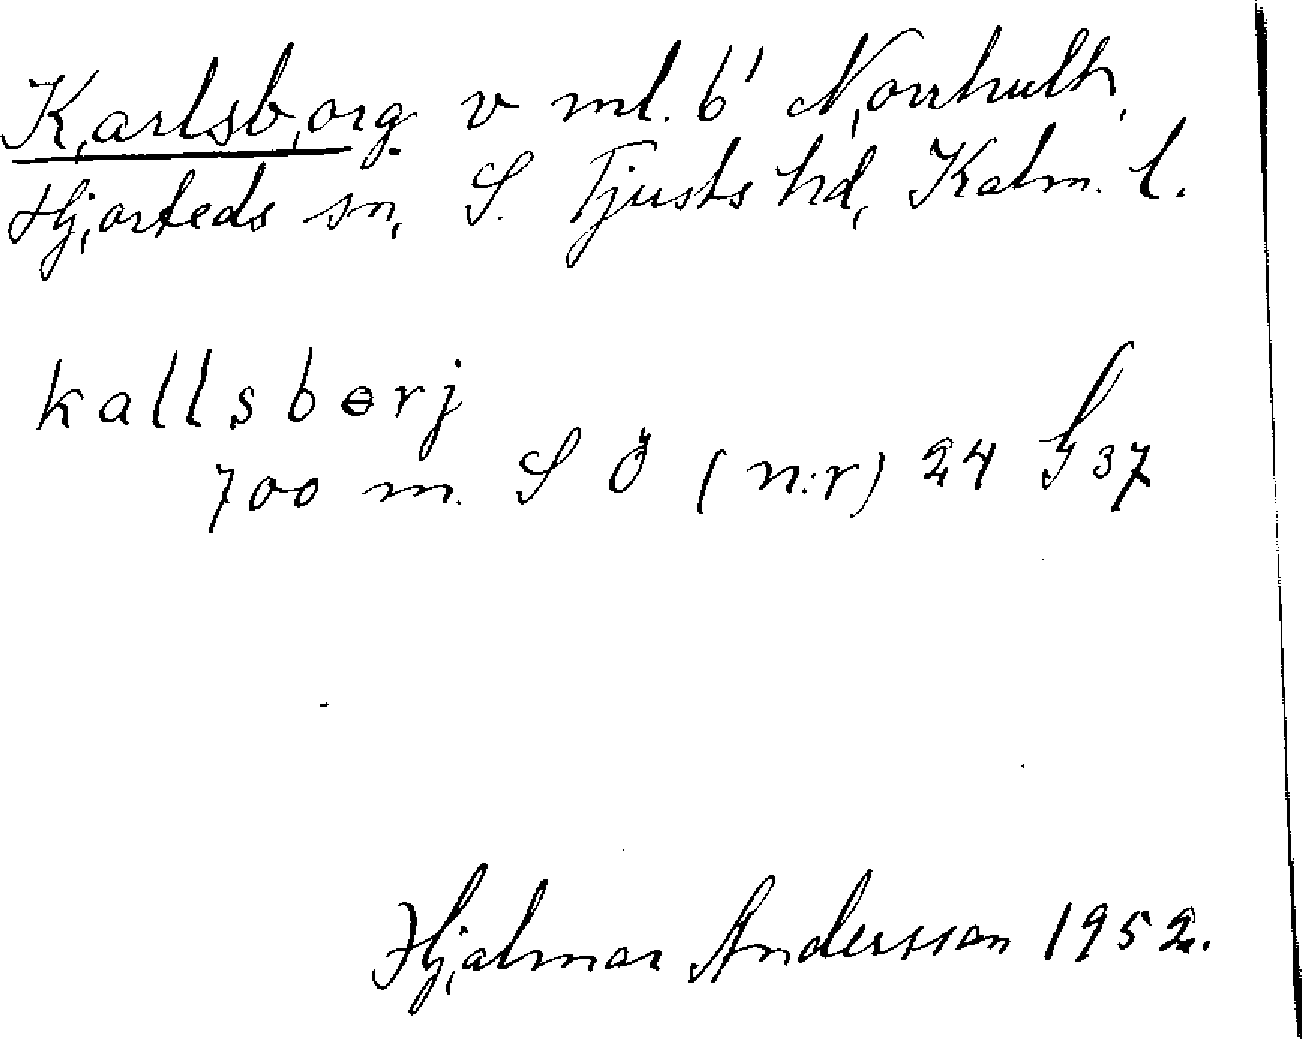 Karlsborg v ml. 6¹ Norrhult,
Hjorteds sn, S. Tjusts hd, Kalm. l.
kallsbɵrj
700 m. S Ö (n:r) 24 G 37
Hjalmar Andersson 1952.